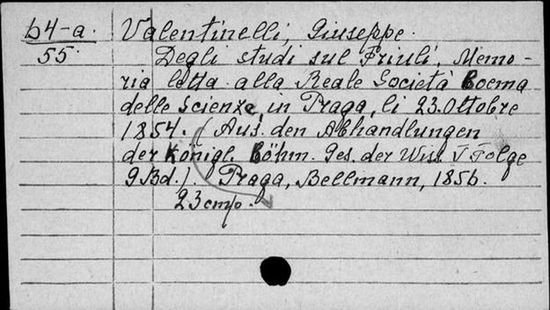 b4-a. Valentinelli, Giuseppe.
55. Degli studi sul Friuli. Memo-
ria letta alla Reale Società Boema
delle Scienze, in Praga, li 23. Ottobre
1854. (Aus. den Abhandlungen
der Königl. Böhm. Ges. der Wiss. V Folge
9 Bd.) Praga, Bellmann, 1856.
23 cmp.